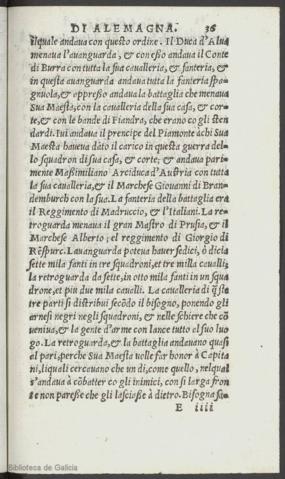 DI ALEMAGNA. 36
ilquale andaua con questo ordine. Il Duca d'Alua
menaua l'auanguarda, & con esso andaua il Conte
di Burra con tutta la sua caualleria, & fanteria, &
in questa auanguarda andaua tutta la fanteria spa-
gnuola, & appresso andaua la battaglia che menaua
Sua Maesta, con la caualleria della sua casa, & cor-
te, & con le bande di Fiandra, che erano co gli sten
dardi. Iui andaua il prencipe del Piamonte à chi Sua
Maesta haueua dato il carico in questa guerra del-
lo squadron di sua casa, & corte; & andaua pari-
mente Massimiliano Arciduca d'Austria con tutta
la sua caualleria, & il Marchese Giouanni di Bran-
demburch con la sua. La fanteria della battaglia era
il Reggimento di Madruccio, & l'Italiani. La re-
troguarda menaua il gran Mastro di Prusia, & il
Marchese Alberto; el reggimento di Giorgio di
Rẽspurc. Lauanguarda poteua hauer sedici, ò dicia
sette mila fanti in tre squadroni, et tre mila caualli;
la retroguarda da sette, in otto mila fanti in un squa
drone, et piu due mila caualli. La caualleria di q̃ste
tre parti si distribui secõdo il bisogno, ponendo gli
arnesi negri negli squadroni, & nelle schiere che cõ
ueniua, & la gente d'arme con lance tutto al suo luo
go. La retroguarda, & la battaglia andauano quasi
al pari, perche Sua Maesta uolle far honor à Capita
ni, liquali cercauano che un di, come quello, nelqual
s'andaua à cõbatter co gli inimici, con si larga fron
te non paresse che gli lasciasse à dietro. Bisogna sa-
E iiii
Biblioteca de Galicia